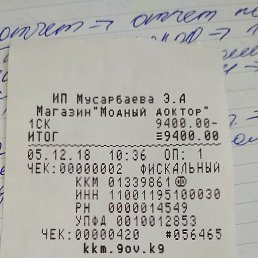 отчет → отчет
ИП Мусарбаева З.А
Магазин"Модный доктор"
1СК 9400.00-
ИТОГ ≡9400.00
05.12.18 10:36 ОП: 1
ЧЕК:00000002 ФИСКАЛЬНЫЙ
ККМ 01339861
ИНН 11001195100030
РН 0000014549
УПФД 0010012853
ЧЕК:00000420 #056465
kkm.gov.kg